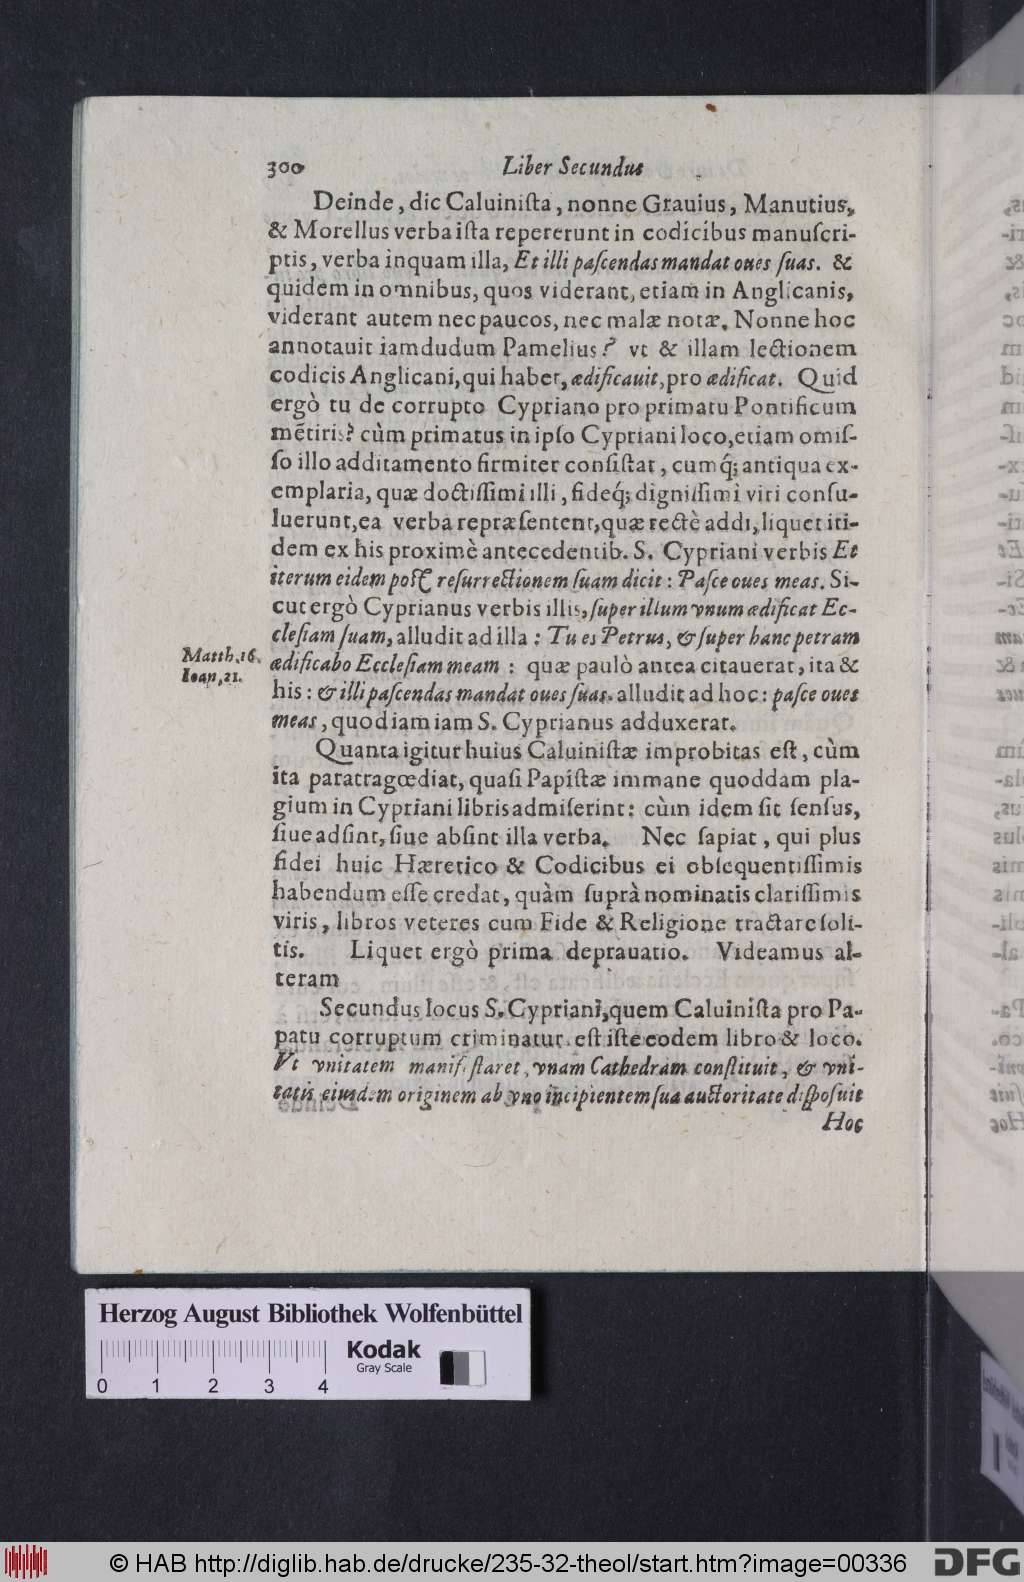 300 Liber Secundus
Deinde, dic Caluiniſta, nonne Grauius, Manutius,
& Morellus verba iſta repererunt in codicibus manuſcri-
ptis, verba inquam illa, Et illi paſcendas mandat oues ſuas. &
quidem in omnibus, quos viderant, etiam in Anglicanis,
viderant autem nec paucos, nec malæ notæ. Nonne hoc
annotauit iamdudum Pamelius? vt & illam lectionem
codicis Anglicani, qui habet, ædificauit, pro ædificat. Quid
ergò tu de corrupto Cypriano pro primatu Pontificum
mētiris? cùm primatus in ipſo Cypriani loco, etiam omiſ-
ſo illo additamento firmiter conſiſtat, cumq́; antiqua ex-
emplaria, quæ doctiſſimi illi, fideq́; digniſſimi viri conſu-
luerunt, ea verba repræſentent, quæ rectè addi, liquet iti-
dem ex his proximè antecedentib. S. Cypriani verbis Et
iterum eidem poſt reſurrectionem ſuam dicit: Paſce oues meas. Si-
cut ergò Cyprianus verbis illis, ſuper illum vnum ædificat Ec-
cleſiam ſuam, alludit ad illa: Tu es Petrus, & ſuper hanc petram
Matth. 16.
Ioan. 21.
ædificabo Eccleſiam meam: quæ paulò antea citauerat, ita &
his: & illi paſcendas mandat oues ſuas. alludit ad hoc: paſce oues
meas, quod iam iam S. Cyprianus adduxerat.
Quanta igitur huius Caluiniſtæ improbitas eſt, cùm
ita paratragœdiat, quaſi Papiſtæ immane quoddam pla-
gium in Cypriani libris admiſerint: cùm idem ſit ſenſus,
ſiue adſint, ſiue abſint illa verba. Nec ſapiat, qui plus
fidei huic Hæretico & Codicibus ei obſequentiſſimis
habendum eſſe credat, quàm ſuprà nominatis clariſſimis
viris, libros veteres cum Fide & Religione tractare ſoli-
tis. Liquet ergò prima deprauatio. Videamus al-
teram
Secundus locus S. Cypriani, quem Caluiniſta pro Pa-
patu corruptum criminatur. eſt iſte eodem libro & loco.
Vt vnitatem manifeſtaret, vnam Cathedram conſtituit, & vni-
tatis eiuſdem originem ab vno incipientem ſua auctoritate diſpoſuit
Hoc
Herzog August Bibliothek Wolfenbüttel
Kodak
Gray Scale
0 1 2 3 4
© HAB http://diglib.hab.de/drucke/235-32-theol/start.htm?image=00336
DFG